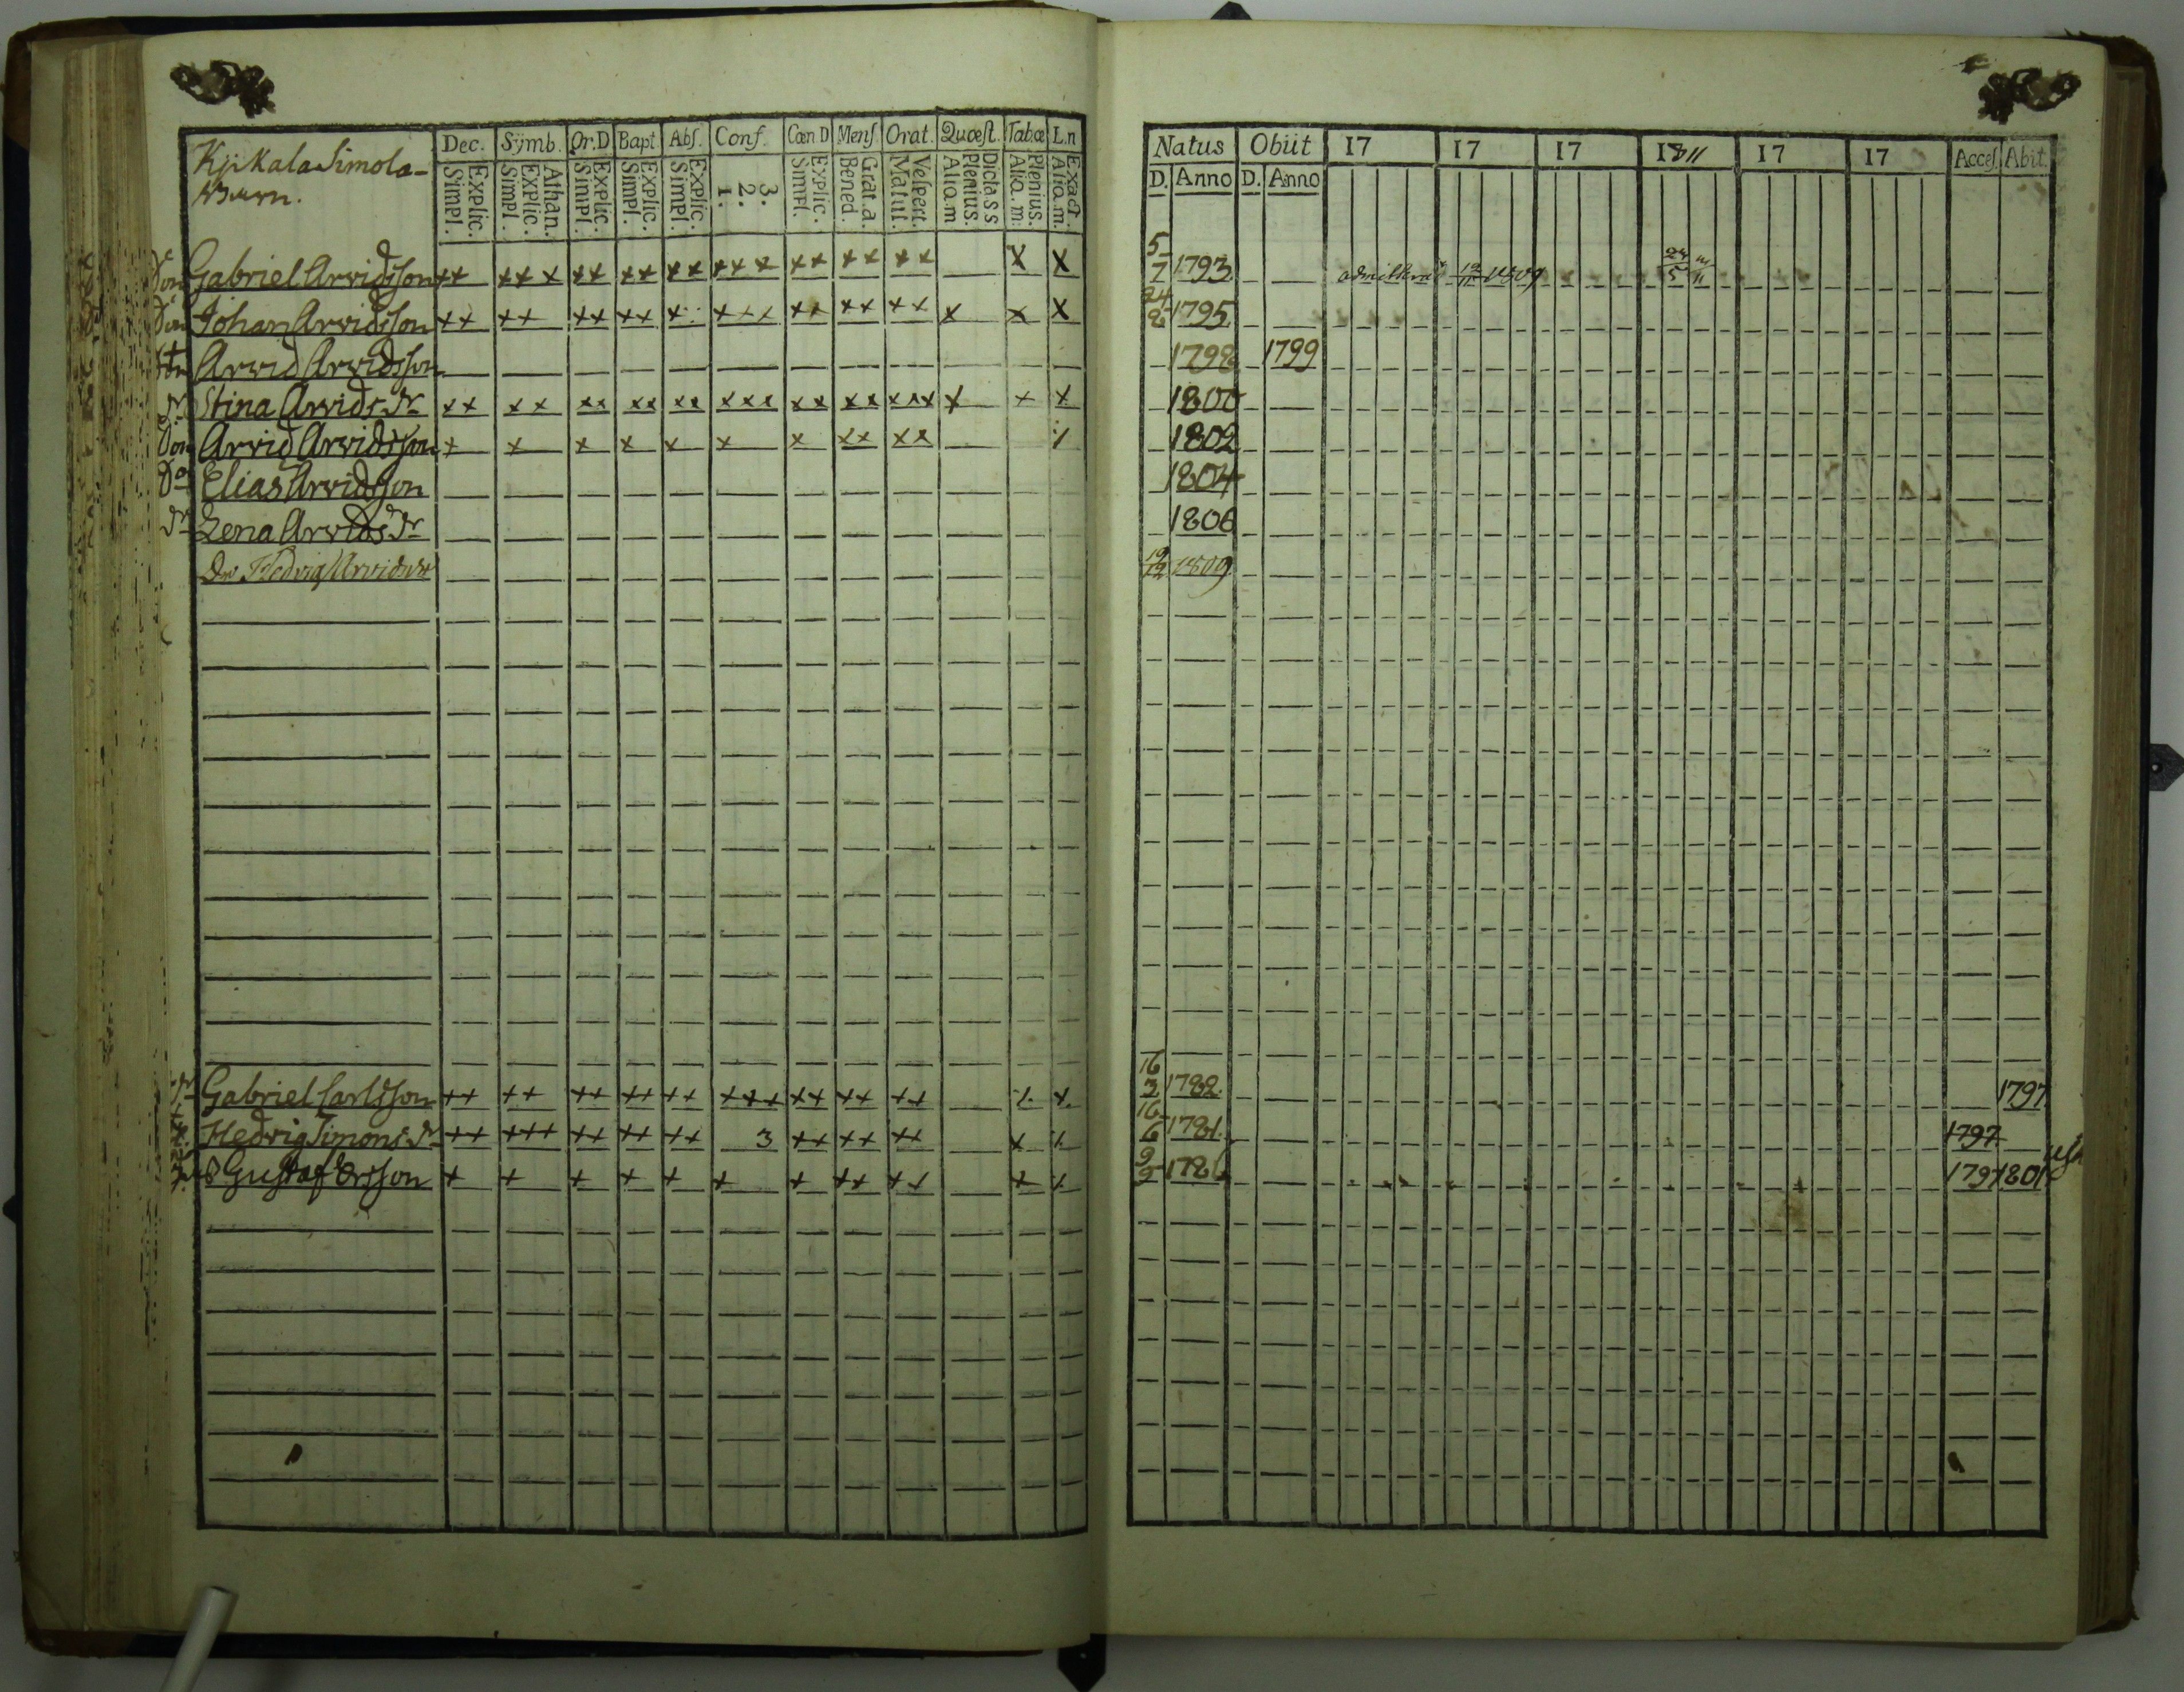 Kjikala Simola-
Barn.
Dec. Sÿmb. Or.D Bapt. Abſ. Conf. Cœn D Menſ. Orat. Quœſt. Tab.œ L.n
Explic. Simpl. Athan. Explic. Simpl. Explic. Simpl. Explic. Simpl. Explic. Simpl. 3. 2. 1. Explic. Simpl. Grat. a. Bened. Veſpert. Matut. Dicta s s Plenius. Aliq.m Plenius. Aliq.m. Exact. Aliq.m.
Natus Obiit 17 17 17 1811 17 17 Acceſ. Abit.
D. Anno D. Anno
Son Gabriel Arvidsson ++ +++ ++ ++ ++ +++ ++ ++ ++ X X 5/7 1793 12/11 1809 24/5
Son Johan Arvidsson ++ ++ ++ ++ +++ ++ ++ ++ x x X 24/8 1795
Son Arvid Arvidsson 1798 1799
dr Stina Arvids dr ++ ++ ++ ++ ++ +++ ++ ++ +++ x + x 1800
Son Arvid Arvidsson + + + + + + + ++ ++ 1802
So Elias Arvidsson 1804
dr Lena Arvids dr 1806
dr Hedvig Arvidsdr 19/12 1809
Gabriel Carlsson ++ ++ ++ ++ ++ +++ ++ ++ ++ x x 16/3 1782 1797
Hedvig Simons dr ++ +++ ++ ++ ++ 3 ++ ++ ++ x x 16/6 1781 1797
Gustaf Ersson + + + + + + + ++ ++ + x 9/2 178 1797 1801